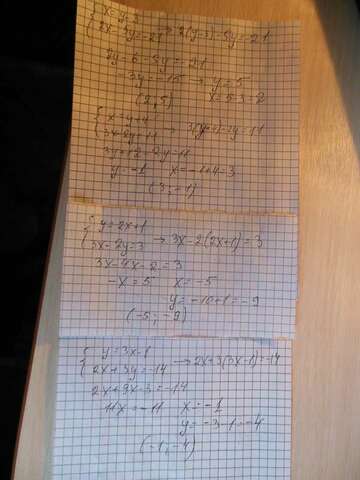 { x = y - 3
{ 2x - 5y = -21 → 2(y-3) - 5y = -21
2y - 6 - 5y = -21
-3y = -15 → y = 5
(2; 5) x = 5-3 = 2
{ x - y = 4
{ 3x - 2y = 11 → 3(y+4) - 2y = 11
3y + 12 - 2y = 11
y = -1 x = -1+4 = 3
(3; -1)
{ y = 2x + 1
{ 3x - 2y = 3 → 3x - 2(2x+1) = 3
3x - 4x - 2 = 3
-x = 5 x = -5
y = -10+1 = -9
(-5; -9)
{ y = 3x - 1
{ 2x + 3y = -14 → 2x + 3(3x-1) = -14
2x + 9x - 3 = -14
11x = -11 x = -1
y = -3-1 = -4
(-1; -4)